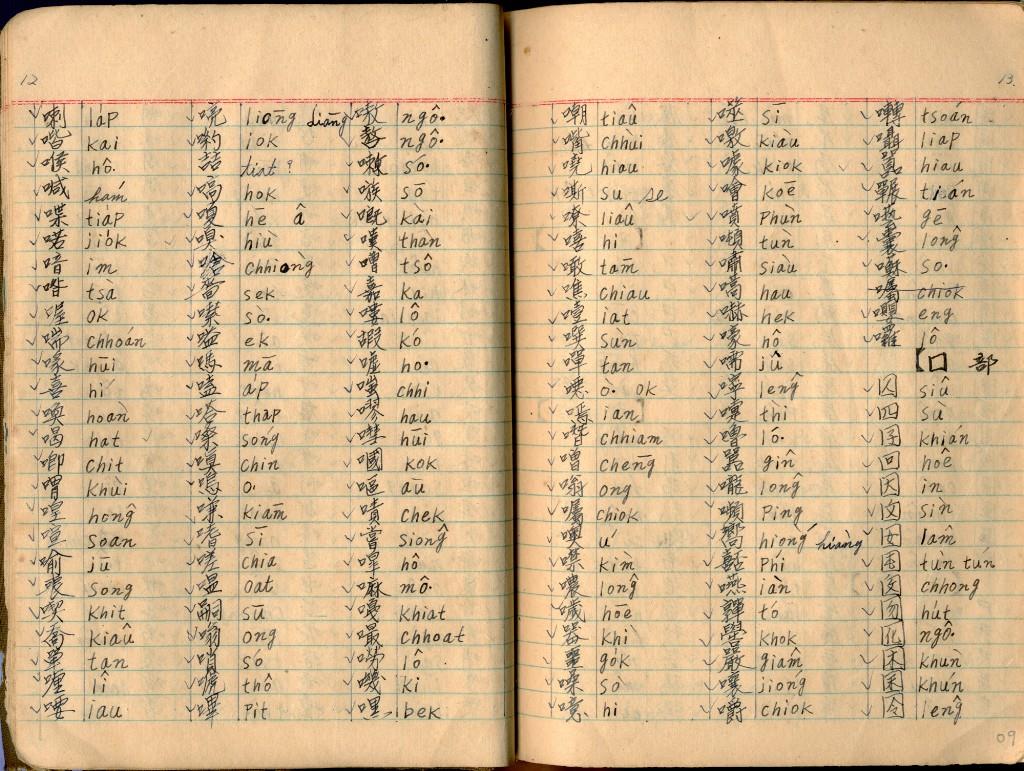 12
喇 láp
喈 kai
喉 hô·
喊 hám
喋 tiap
喏 jiók
喑 im
喒 tsà
喔 ok
喘 chhoán
喙 hūi
喜 hí
喚 hoàn
喝 hat
喞 chit
喟 khùi
喤 hông
喧 soan
喻 jū
喪 song
喫 khit
喬 kiâu
單 tan
喱 lî
喓 iau
喨 liōng liāng
喲 iok
喆 tiat ?
嗃 hok
hē â
嗅 hiù
嗆 chhiòng
嗇 sek
嗉 sò·
嗌 ek
嗎 mā
嗑 áp
嗒 thap
嗓 sóng
嗔 chin
嗚 o·
嗛 kiām
嗜 sī
嗟 chia
嗢 oat
嗣 sū
嗡 ong
嗩 só
thô
嗶 pit
嗷 ngô·
ngô·
só·
嗾 sō
嘅 kài
嘆 thàn
嘈 tsô
嘉 ka
嘍 lô
嘏 kó
嘘 ho·
嗤 chhi
嘐 hau
嘒 hūi
嘓 kok
嘔 aū
嘖 chek
嘗 siông
嘑 hô
嘛 mô·
嘎 khiat
嘬 chhoat
嘮 lô
嘰 ki
bek
13.
嘲 tiâu
嘴 chhùi
嘵 hiau
嘶 su se
嘹 liâu
嘻 hi
噉 tām
噍 chiau
噎 iat
噀 sùn
嘽 tan
噁 ò· ok
嘕 ian
噆 chhiám
噌 chēng
噏 ong
囑 chiok
噢 ú
噤 kìm
噥 lông
噦 hōe
器 khì
噩 gók
噪 sò
噫 hi
噬 sī
噭 kiàu
噱 kiok
噲 koē
噴 phùn
噸 tùn
嘯 siàu
嚆 hau
嚇 hek
嚎 hô
嚅 jû
嚀 lêng
嚏 thì
嚕 ló·
嚚 gîn
嚨 lông
嚬 pîng
嚮 hióng hiàng
嚭 phí
嚥 iàn
嚲 tó
嚳 khok
嚴 giâm
嚷 jiong
嚼 chiok
囀 tsoán
囁 liap
囂 hiau
囅 tián
囈 gē
囊 lông
囌 so·
囑 chiok
嚶 eng
囉 lô
囗 部
囚 siû
四 sù
囝 khián
回 hôe
因 in
囟 sìn
囡 lâm
囤 tùn tún
囪 chhong
囫 hút
ngô·
困 khùn
囷 khún
囹 lêng
09